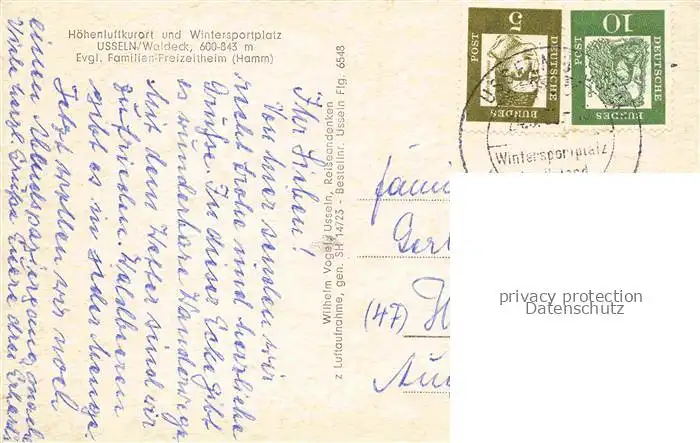 Höhenluftkurort und Wintersportplatz
USSELN/Waldeck, 600-843 m
Evgl. Familien-Freizeitheim (Hamm)
Ihr Lieben!
Von hier senden wir
recht frohe und herzliche
Grüße. In dieser Eck gibt
es wunderbare Wanderwege.
Mit dem Wetter sind wir
zufrieden. Waldbeeren
gibt es in jeder Menge.
Jetzt wollen wir noch
einen Abendspaziergang machen
Viele herzl. Grüße Euere drei
Wilhelm Vogel, Usseln, Reiseandenken
z Luftaufnahme, gen. SH 14/23 - Bestellnr. Usseln Flg. 6548
5
POST
DEUTSCHE
BUNDES
10
POST
DEUTSCHE
BUNDES
Wintersportplatz
Famil
(47) H
privacy protection
Datenschutz